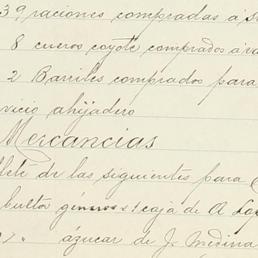 39 raciones compradas á
8 cueros coyote comprados á
2 Barriles comprados para
vicio ahijadero
Mercancias
flete de las siguientes para
bultos géneros 1 caja de A
ázucar de J. Medina